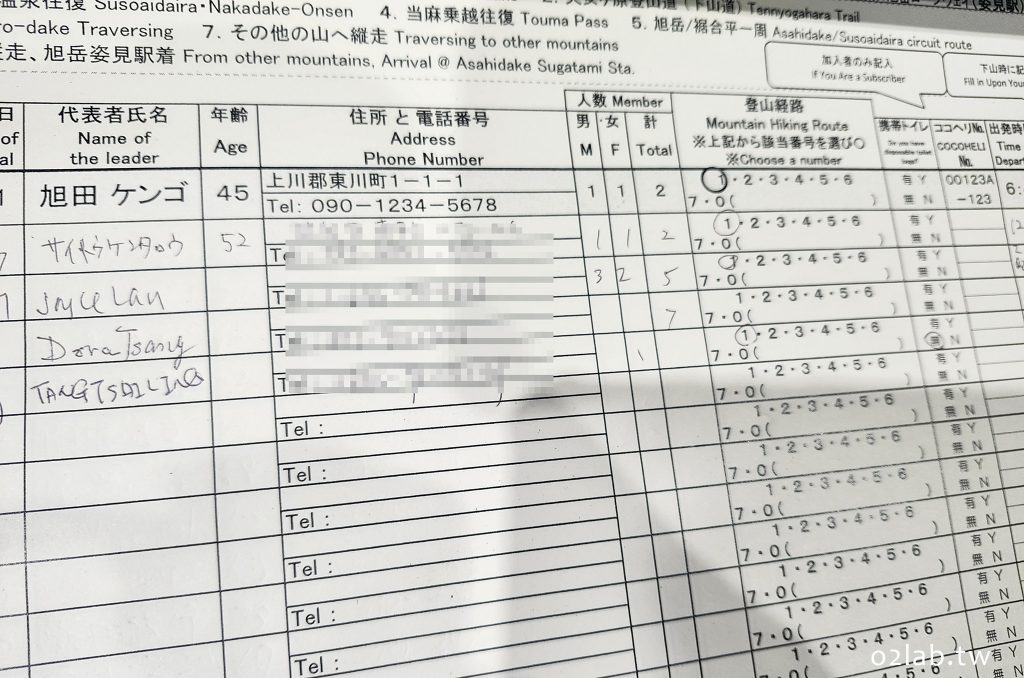 Susoaidaira・Nakadake-Onsen
4. 当麻乗越往復 Touma Pass
5. 旭岳/裾合平一周 Asahidake/Susoaidaira circuit route
Tennyogahara Trail
ro-dake Traversing
7. その他の山へ縦走 Traversing to other mountains
走、旭岳姿見駅着 From other mountains, Arrival @ Asahidake Sugatami Sta.
加入者のみ記入
If You Are a Subscriber
下山時に記
Fill in Upon You
日
代表者氏名
Name of
the leader
年齢
Age
住所と電話番号
Address
Phone Number
人数 Member
男 ・女 計
M F Total
登山経路
Mountain Hiking Route
※上記から該当番号を選び○
※Choose a number
携帯トイレ
ココヘリNo.
COCOHELI
No.
出発時
Time
Depar
旭田 ケンゴ 45 上川郡東川町1-1-1 1 1 2 1・2・3・4・5・6 有 Y 00123A 6:
Tel: 090-1234-5678 7・0( ) 無 N -123
サイトウケンタロウ 52 1 1 2 1・2・3・4・5・6 有 Y
7・0( ) 無 N
Joyce Lau 3 2 5 ・2・3・4・5・6 有 Y
7・0( ) 無 N
Dora Tsang 7 1・2・3・4・5・6 有 Y
7・0( ) 無 N
TANG TSAI LING 1 1・2・3・4・5・6 有 Y
7・0( ) 無 N
Tel : 1・2・3・4・5・6 有 Y
7・0( ) 無 N
Tel : 1・2・3・4・5・6 有 Y
7・0( ) 無 N
Tel : 1・2・3・4・5・6 有 Y
7・0( ) 無 N
Tel : 1・2・3・4・5・6 有 Y
7・0( ) 無 N
Tel : 1・2・3・4・5・6 有 Y
7・0( ) 無 N
Tel : 1・2・3・4・5・6 有 Y
7・0( ) 無 N
o2lab.tw